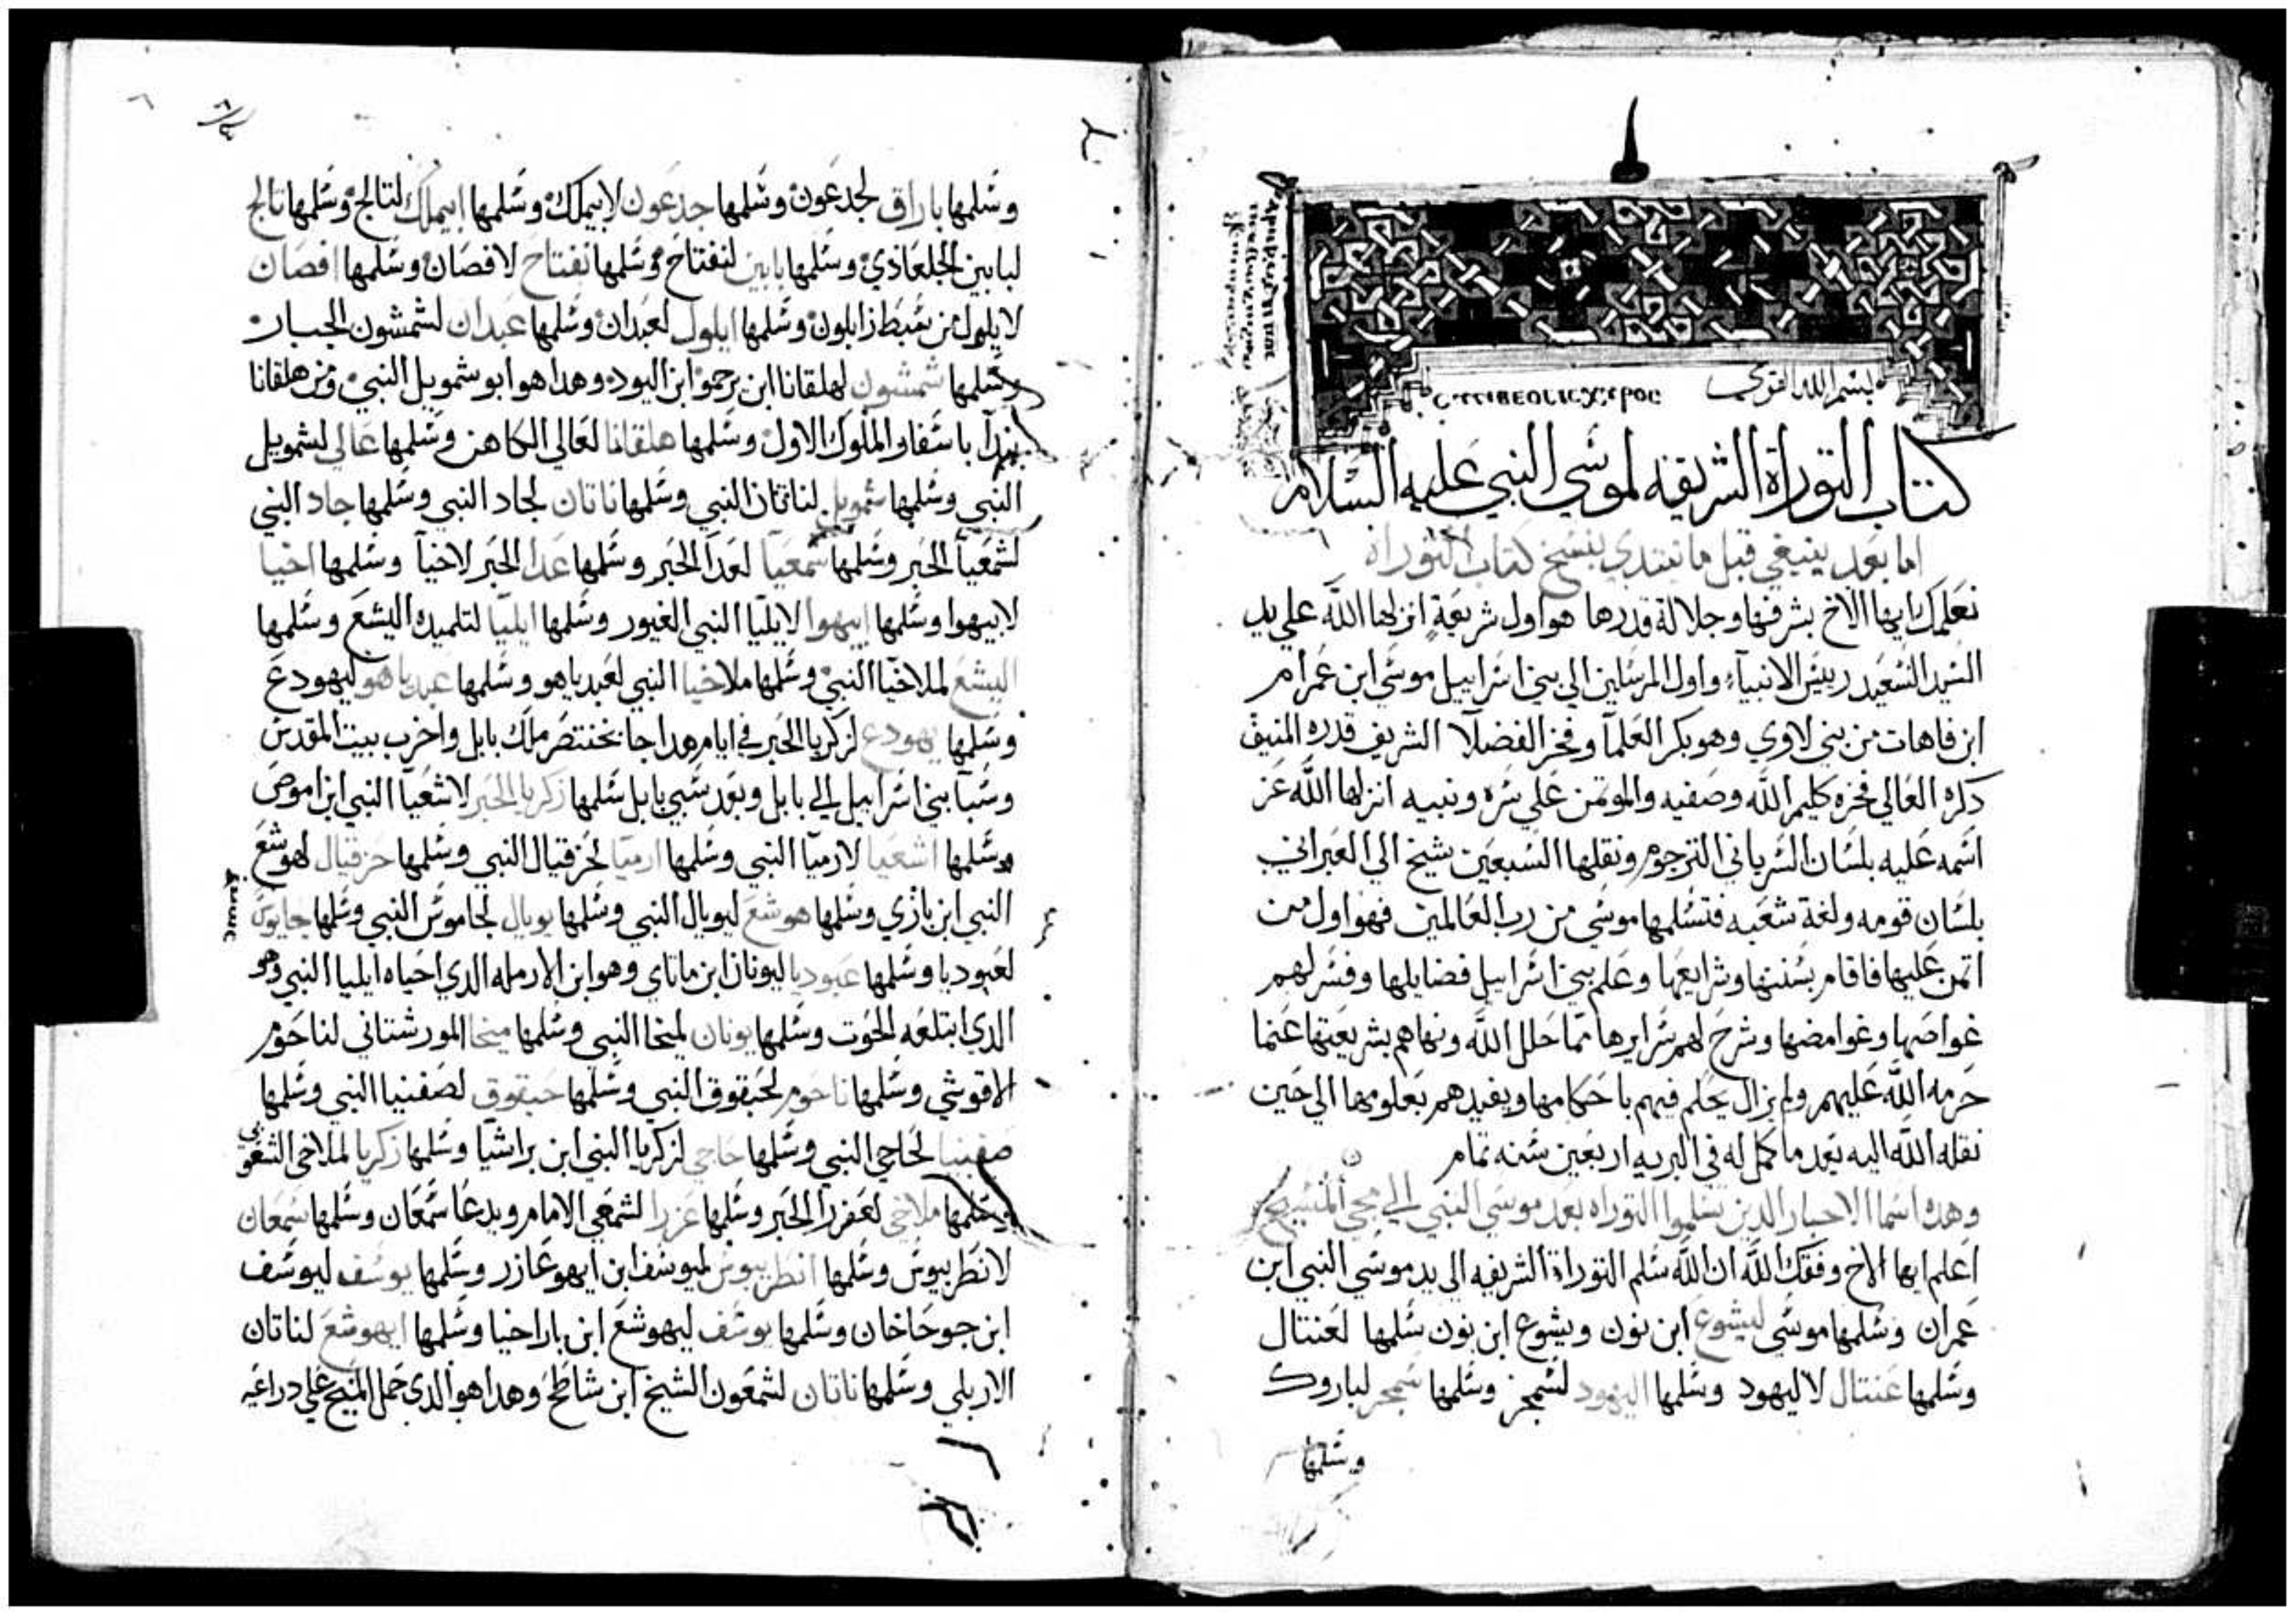 بسم الله القوي
كتاب التوراة الشريفه لموسي النبي عليه السلام
اما بعد ينبغي قبل ما نبتدي بنسخ كتاب التوراة
نعلمك يايها الاخ بشرفها وجلالة قدرها هو اول شريعة انزلها الله علي يد
السيد السعيد رييس الانبياء واول المرسلين الي بني اسراييل موسي ابن عمرام
ابن قاهات من بني لاوي وهو بكر العلما وفخر الفضلا الشريف قدره المنيف
دكره العالي فخره كليم الله وصفيه والموتمن علي سره ونبيه انزلها الله عز
اسمه عليه بلسان السرياني الترجوم ونقلها السبعين شيخ الي العبراني
بلسان قومه ولغة شعبه فتسلمها موسي من رب العالمين فهو اول من
اتمن عليها فاقام بسننها وشرايعها وعلم بني اسراييل فضايلها وفسر لهم
غواصها وغوامضها وشرح لهم سرايرها مما حلل الله ونهاهم بشريعتها عنما
حرمه الله عليهم ولم يزال يحكم فيهم باحكامها ويفيدهم بعلومها الي حين
نقله الله اليه بعد ما كمل له في البريه اربعين سنه تمام
وهده اسما الاحبار الدين تسلموا التوراه بعد موسي النبي الي مجي المسيح
اعلم ايها الاخ وفقك الله ان الله سلم التوراة الشريفه الي يد موسي النبي ابن
عمران وسلمها موسي ليشوع ابن نون ويشوع ابن نون سلمها لعنتال
وسلمها عنتال لاليهود وسلمها اليهود لشمجر وسلمها شمجر لباروك
وسلمها
وسلمها باراق لجدعون وسلمها جدعون لابيملك وسلمها ابيملك لتالج وسلمها تالج
لبابين الجلعادي وسلمها بابين لنفتاح وسلمها نفتاح لافصان وسلمها افصان
لايلول من سبط زابلون وسلمها ايلول لعبدان وسلمها عبدان لشمشون الجبار
وسلمها شمشون لهلقانا ابن يرحمو ابن اليود وهدا هو ابو شمويل النبي ومن هلقانا
نبدا باسفار الملوك الاول وسلمها هلقانا لعالي الكاهن وسلمها عالي لشمويل
النبي وسلمها شمويل لناتان النبي وسلمها ناتان لجاد النبي وسلمها جاد النبي
لشمعيا الحبر وسلمها شمعيا لعدا الحبر وسلمها عدا الحبر لاخيا وسلمها اخيا
لابيهوا وسلمها ابيهوا لايليا النبي الغيور وسلمها ايليا لتلميده اليشع وسلمها
اليشع لملاخيا النبي وسلمها ملاخيا النبي لعبدياهو وسلمها عبدياهو ليهودع
وسلمها يهودع لزكريا الحبر في ايام هدا جا بختنصر ملك بابل واخرب بيت المقدس
وسبا بني اسراييل الي بابل وبعد سبي بابل سلمها زكريا الحبر لاشعيا النبي ابن اموص
وسلمها اشعيا لارميا النبي وسلمها ارميا لحزقيال النبي وسلمها حزقيال لهوشع
النبي ابن بازري وسلمها هوشع ليويال النبي وسلمها يويال لجاموس النبي وسلمها جاموس
لعبوديا وسلمها عبوديا ليونان ابن ماتاي وهو ابن الارمله الدي احياه ايليا النبي وهو
الدي ابتلعه الحوت وسلمها يونان لميخا النبي وسلمها ميخا المورشتاني لناحوم
الاقوشي وسلمها ناحوم لحبقوق النبي وسلمها حبقوق لصفنيا النبي وسلمها
صفنيا لحاجي النبي وسلمها حاجي لزكريا النبي ابن براشيا وسلمها زكريا لملاخي
وسلمها ملاخي لعزرا الحبر وسلمها عزرا لشمعي الامام ويدعا سمعان وسلمها سمعان
لانطربيوس وسلمها انطربيوس ليوسف ابن ايهوعازر وسلمها يوسف ليوسف
ابن جوحاخان وسلمها يوسف ليهوشع ابن باراخيا وسلمها ايهوشع لناتان
الاربلي وسلمها ناتان لشمعون الشيخ ابن شاطح وهدا هو الدي حمل المسيح علي دراعيه